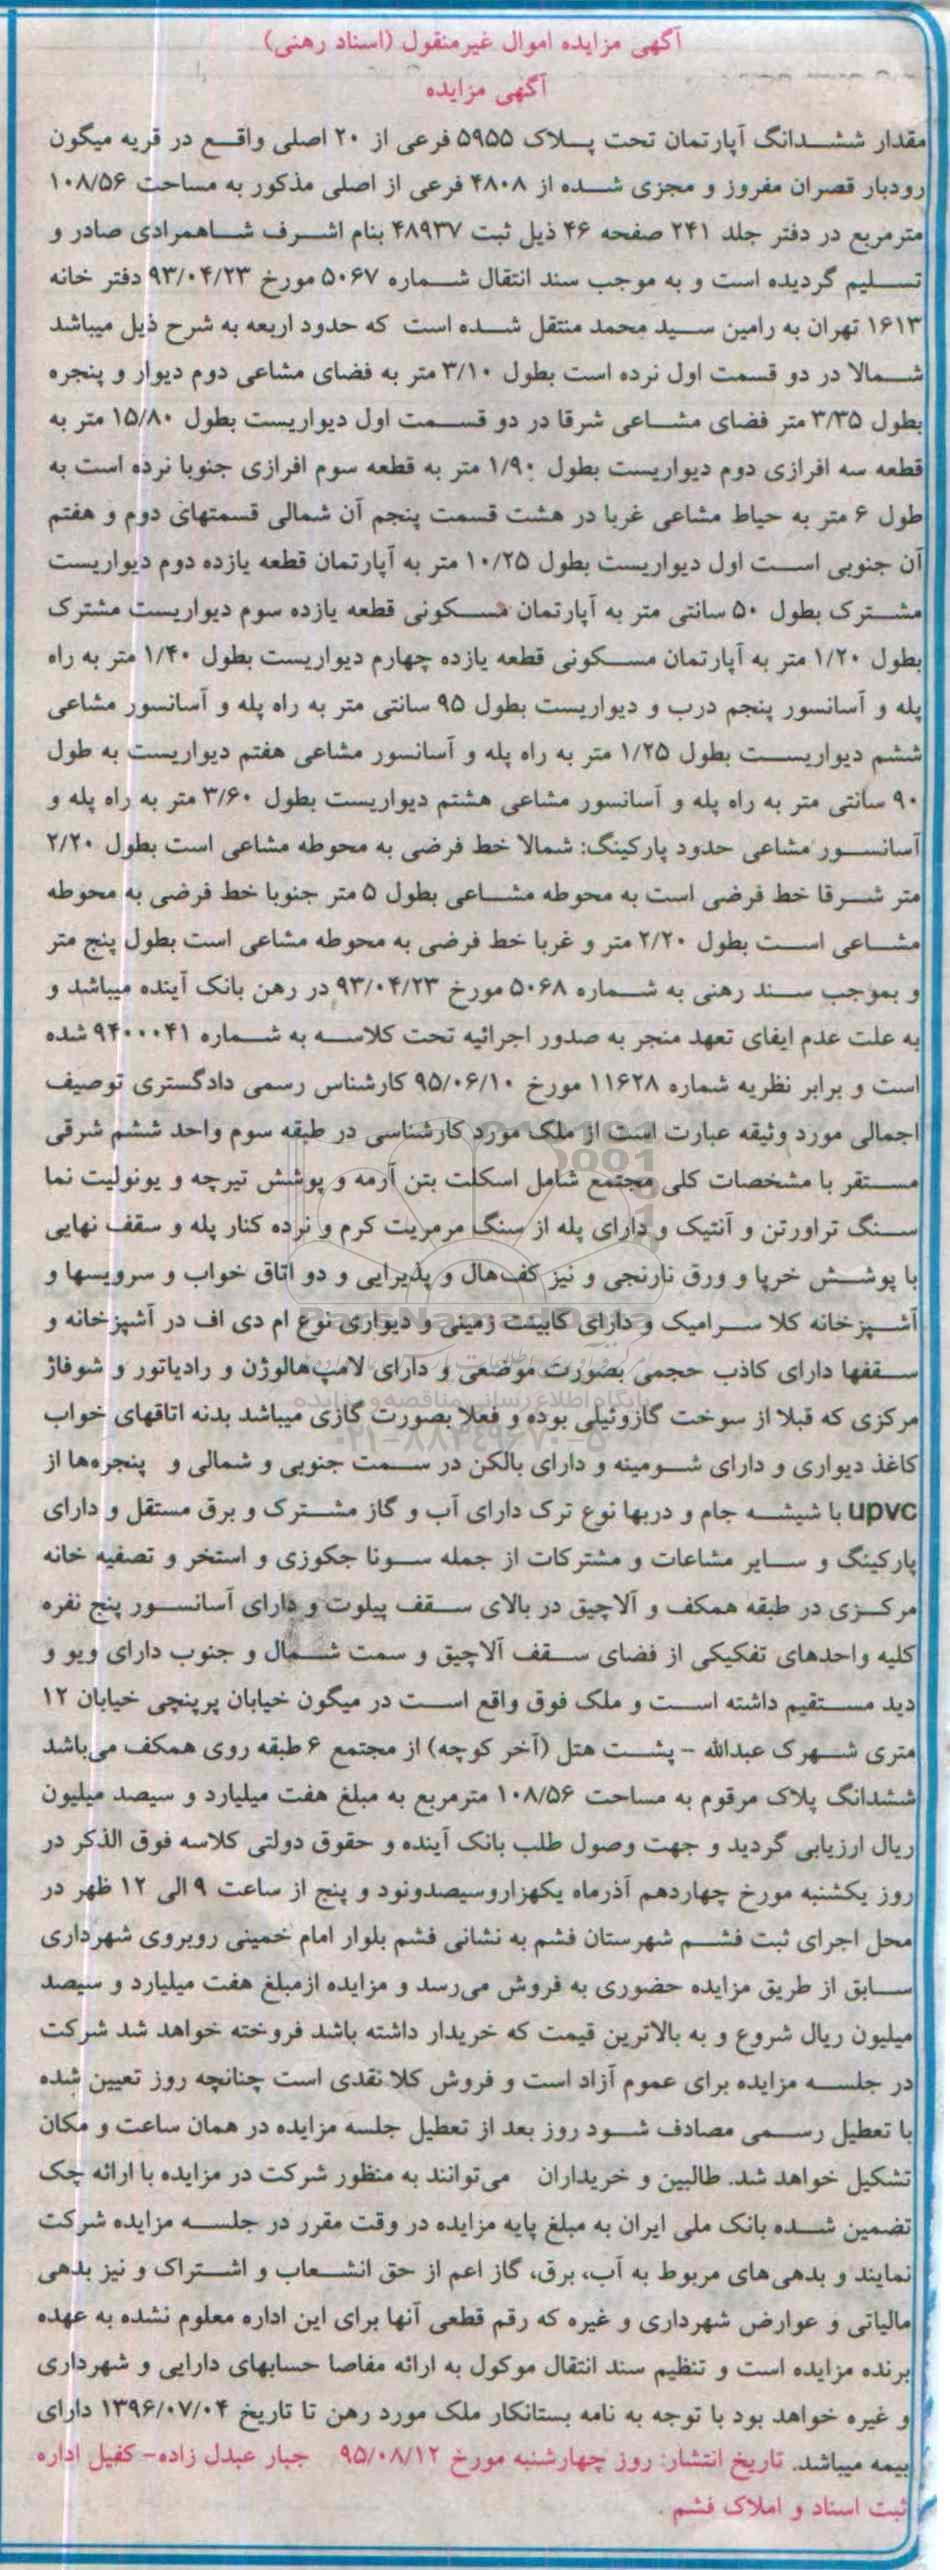 آگهی مزایده اموال غیرمنقول (اسناد رهنی)
آگهی مزایده
مقدار ششدانگ آپارتمان تحت پلاک ۵۹۵۵ فرعی از ۲۰ اصلی واقع در قریه میگون
رودبار قصران مفروز و مجزی شده از ۴۸۰۸ فرعی از اصلی مذکور به مساحت ۱۰۸/۵۶
مترمربع در دفتر جلد ۲۴۱ صفحه ۴۶ ذیل ثبت ۴۸۹۳۷ بنام اشرف شاهمرادی صادر و
تسلیم گردیده است و به موجب سند انتقال شماره ۵۰۶۷ مورخ ۹۳/۰۴/۲۳ دفتر خانه
۱۶۱۳ تهران به رامین سید محمد منتقل شده است که حدود اربعه به شرح ذیل میباشد
شمالا در دو قسمت اول نرده است بطول ۳/۱۰ متر به فضای مشاعی دوم دیوار و پنجره
بطول ۳/۳۵ متر فضای مشاعی شرقا در دو قسمت اول دیواریست بطول ۱۵/۸۰ متر به
قطعه سه افرازی دوم دیواریست بطول ۱/۹۰ متر به قطعه سوم افرازی جنوبا نرده است به
طول ۶ متر به حیاط مشاعی غربا در هشت قسمت پنجم آن شمالی قسمتهای دوم و هفتم
آن جنوبی است اول دیواریست بطول ۱۰/۲۵ متر به آپارتمان قطعه یازده دوم دیواریست
مشترک بطول ۵۰ سانتی متر به آپارتمان مسکونی قطعه یازده سوم دیواریست مشترک
بطول ۱/۲۰ متر به آپارتمان مسکونی قطعه یازده چهارم دیواریست بطول ۱/۴۰ متر به راه
پله و آسانسور پنجم درب و دیواریست بطول ۹۵ سانتی متر به راه پله و آسانسور مشاعی
ششم دیواریست بطول ۱/۲۵ متر به راه پله و آسانسور مشاعی هفتم دیواریست به طول
۹۰ سانتی متر به راه پله و آسانسور مشاعی هشتم دیواریست بطول ۳/۶۰ متر به راه پله و
آسانسور مشاعی حدود پارکینگ: شمالا خط فرضی به محوطه مشاعی است بطول ۲/۲۰
متر شرقا خط فرضی است به محوطه مشاعی بطول ۵ متر جنوبا خط فرضی به محوطه
مشاعی است بطول ۲/۲۰ متر و غربا خط فرضی به محوطه مشاعی است بطول پنج متر
و بموجب سند رهنی به شماره ۵۰۶۸ مورخ ۹۳/۰۴/۲۳ در رهن بانک آینده میباشد و
به علت عدم ایفای تعهد منجر به صدور اجرائیه تحت کلاسه به شماره ۹۴۰۰۰۴۱ شده
است و برابر نظریه شماره ۱۱۶۲۸ مورخ ۹۵/۰۶/۱۰ کارشناس رسمی دادگستری توصیف
اجمالی مورد وثیقه عبارت است از ملک مورد کارشناسی در طبقه سوم واحد ششم شرقی
مستقر با مشخصات کلی مجتمع شامل اسکلت بتن آرمه و پوشش تیرچه و یونولیت نما
سنگ تراورتن و آنتیک و دارای پله از سنگ مرمریت کرم و نرده کنار پله و سقف نهایی
با پوشش خرپا و ورق نارنجی و نیز کف‌هال و پذیرایی و دو اتاق خواب و سرویسها و
آشپزخانه کلا سرامیک و دارای کابینت زمینی و دیواری نوع ام دی اف در آشپزخانه و
سقفها دارای کاذب حجمی بصورت موضعی و دارای لامپ‌هالوژن و رادیاتور و شوفاژ
مرکزی که قبلا از سوخت گازوئیلی بوده و فعلا بصورت گازی میباشد بدنه اتاقهای خواب
کاغذ دیواری و دارای شومینه و دارای بالکن در سمت جنوبی و شمالی و پنجره‌ها از
upvc با شیشه جام و دربها نوع ترک دارای آب و گاز مشترک و برق مستقل و دارای
پارکینگ و سایر مشاعات و مشترکات از جمله سونا جکوزی و استخر و تصفیه خانه
مرکزی در طبقه همکف و آلاچیق در بالای سقف پیلوت و دارای آسانسور پنج نفره
کلیه واحدهای تفکیکی از فضای سقف آلاچیق و سمت شمال و جنوب دارای ویو و
دید مستقیم داشته است و ملک فوق واقع است در میگون خیابان پرپنچی خیابان ۱۲
متری شهرک عبدالله - پشت هتل (آخر کوچه) از مجتمع ۶ طبقه روی همکف می‌باشد
ششدانگ پلاک مرقوم به مساحت ۱۰۸/۵۶ مترمربع به مبلغ هفت میلیارد و سیصد میلیون
ریال ارزیابی گردید و جهت وصول طلب بانک آینده و حقوق دولتی کلاسه فوق الذکر در
روز یکشنبه مورخ چهاردهم آذرماه یکهزاروسیصدونود و پنج از ساعت ۹ الی ۱۲ ظهر در
محل اجرای ثبت فشم شهرستان فشم به نشانی فشم بلوار امام خمینی روبروی شهرداری
سابق از طریق مزایده حضوری به فروش می‌رسد و مزایده ازمبلغ هفت میلیارد و سیصد
میلیون ریال شروع و به بالاترین قیمت که خریدار داشته باشد فروخته خواهد شد شرکت
در جلسه مزایده برای عموم آزاد است و فروش کلا نقدی است چنانچه روز تعیین شده
با تعطیل رسمی مصادف شود روز بعد از تعطیل جلسه مزایده در همان ساعت و مکان
تشکیل خواهد شد. طالبین و خریداران می‌توانند به منظور شرکت در مزایده با ارائه چک
تضمین شده بانک ملی ایران به مبلغ پایه مزایده در وقت مقرر در جلسه مزایده شرکت
نمایند و بدهی‌های مربوط به آب، برق، گاز اعم از حق انشعاب و اشتراک و نیز بدهی
مالیاتی و عوارض شهرداری و غیره که رقم قطعی آنها برای این اداره معلوم نشده به عهده
برنده مزایده است و تنظیم سند انتقال موکول به ارائه مفاصا حسابهای دارایی و شهرداری
و غیره خواهد بود با توجه به نامه بستانکار ملک مورد رهن تا تاریخ ۱۳۹۶/۰۷/۰۴ دارای
بیمه میباشد. تاریخ انتشار: روز چهارشنبه مورخ ۹۵/۰۸/۱۲ جبار عبدل زاده- کفیل اداره
ثبت اسناد و املاک فشم .
ParsNamadData
پایگاه اطلاع رسانی مناقصه و مزایده
۰۲۱-۸۸۳۴۹۶۷۰-۵